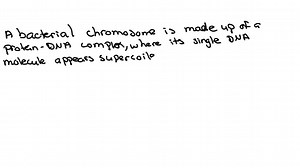 A bacterial chromosome is made up of a
protein-DNA complex, where its single DNA
molecule appears supercoile